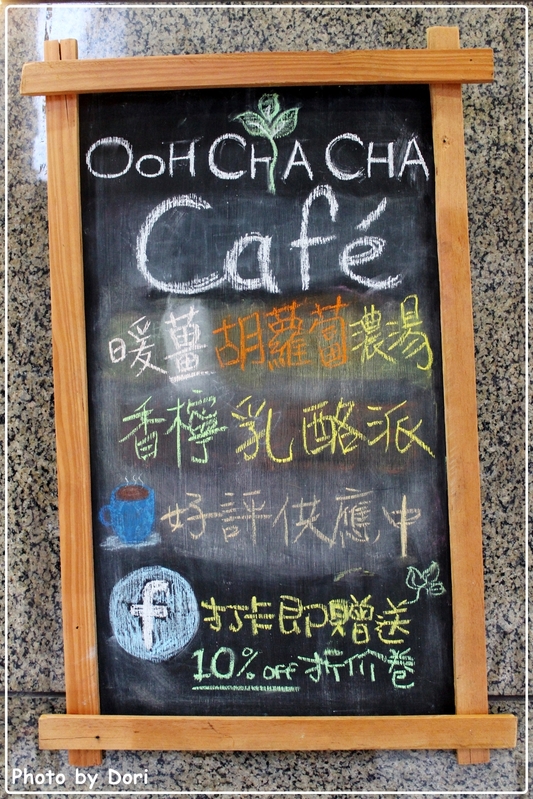 OOH CHA CHA
Café
暖薑胡蘿蔔濃湯
香檸乳酪派
好評供應中
f 打卡即贈送
10% OFF 折价卷
Photo by Dori